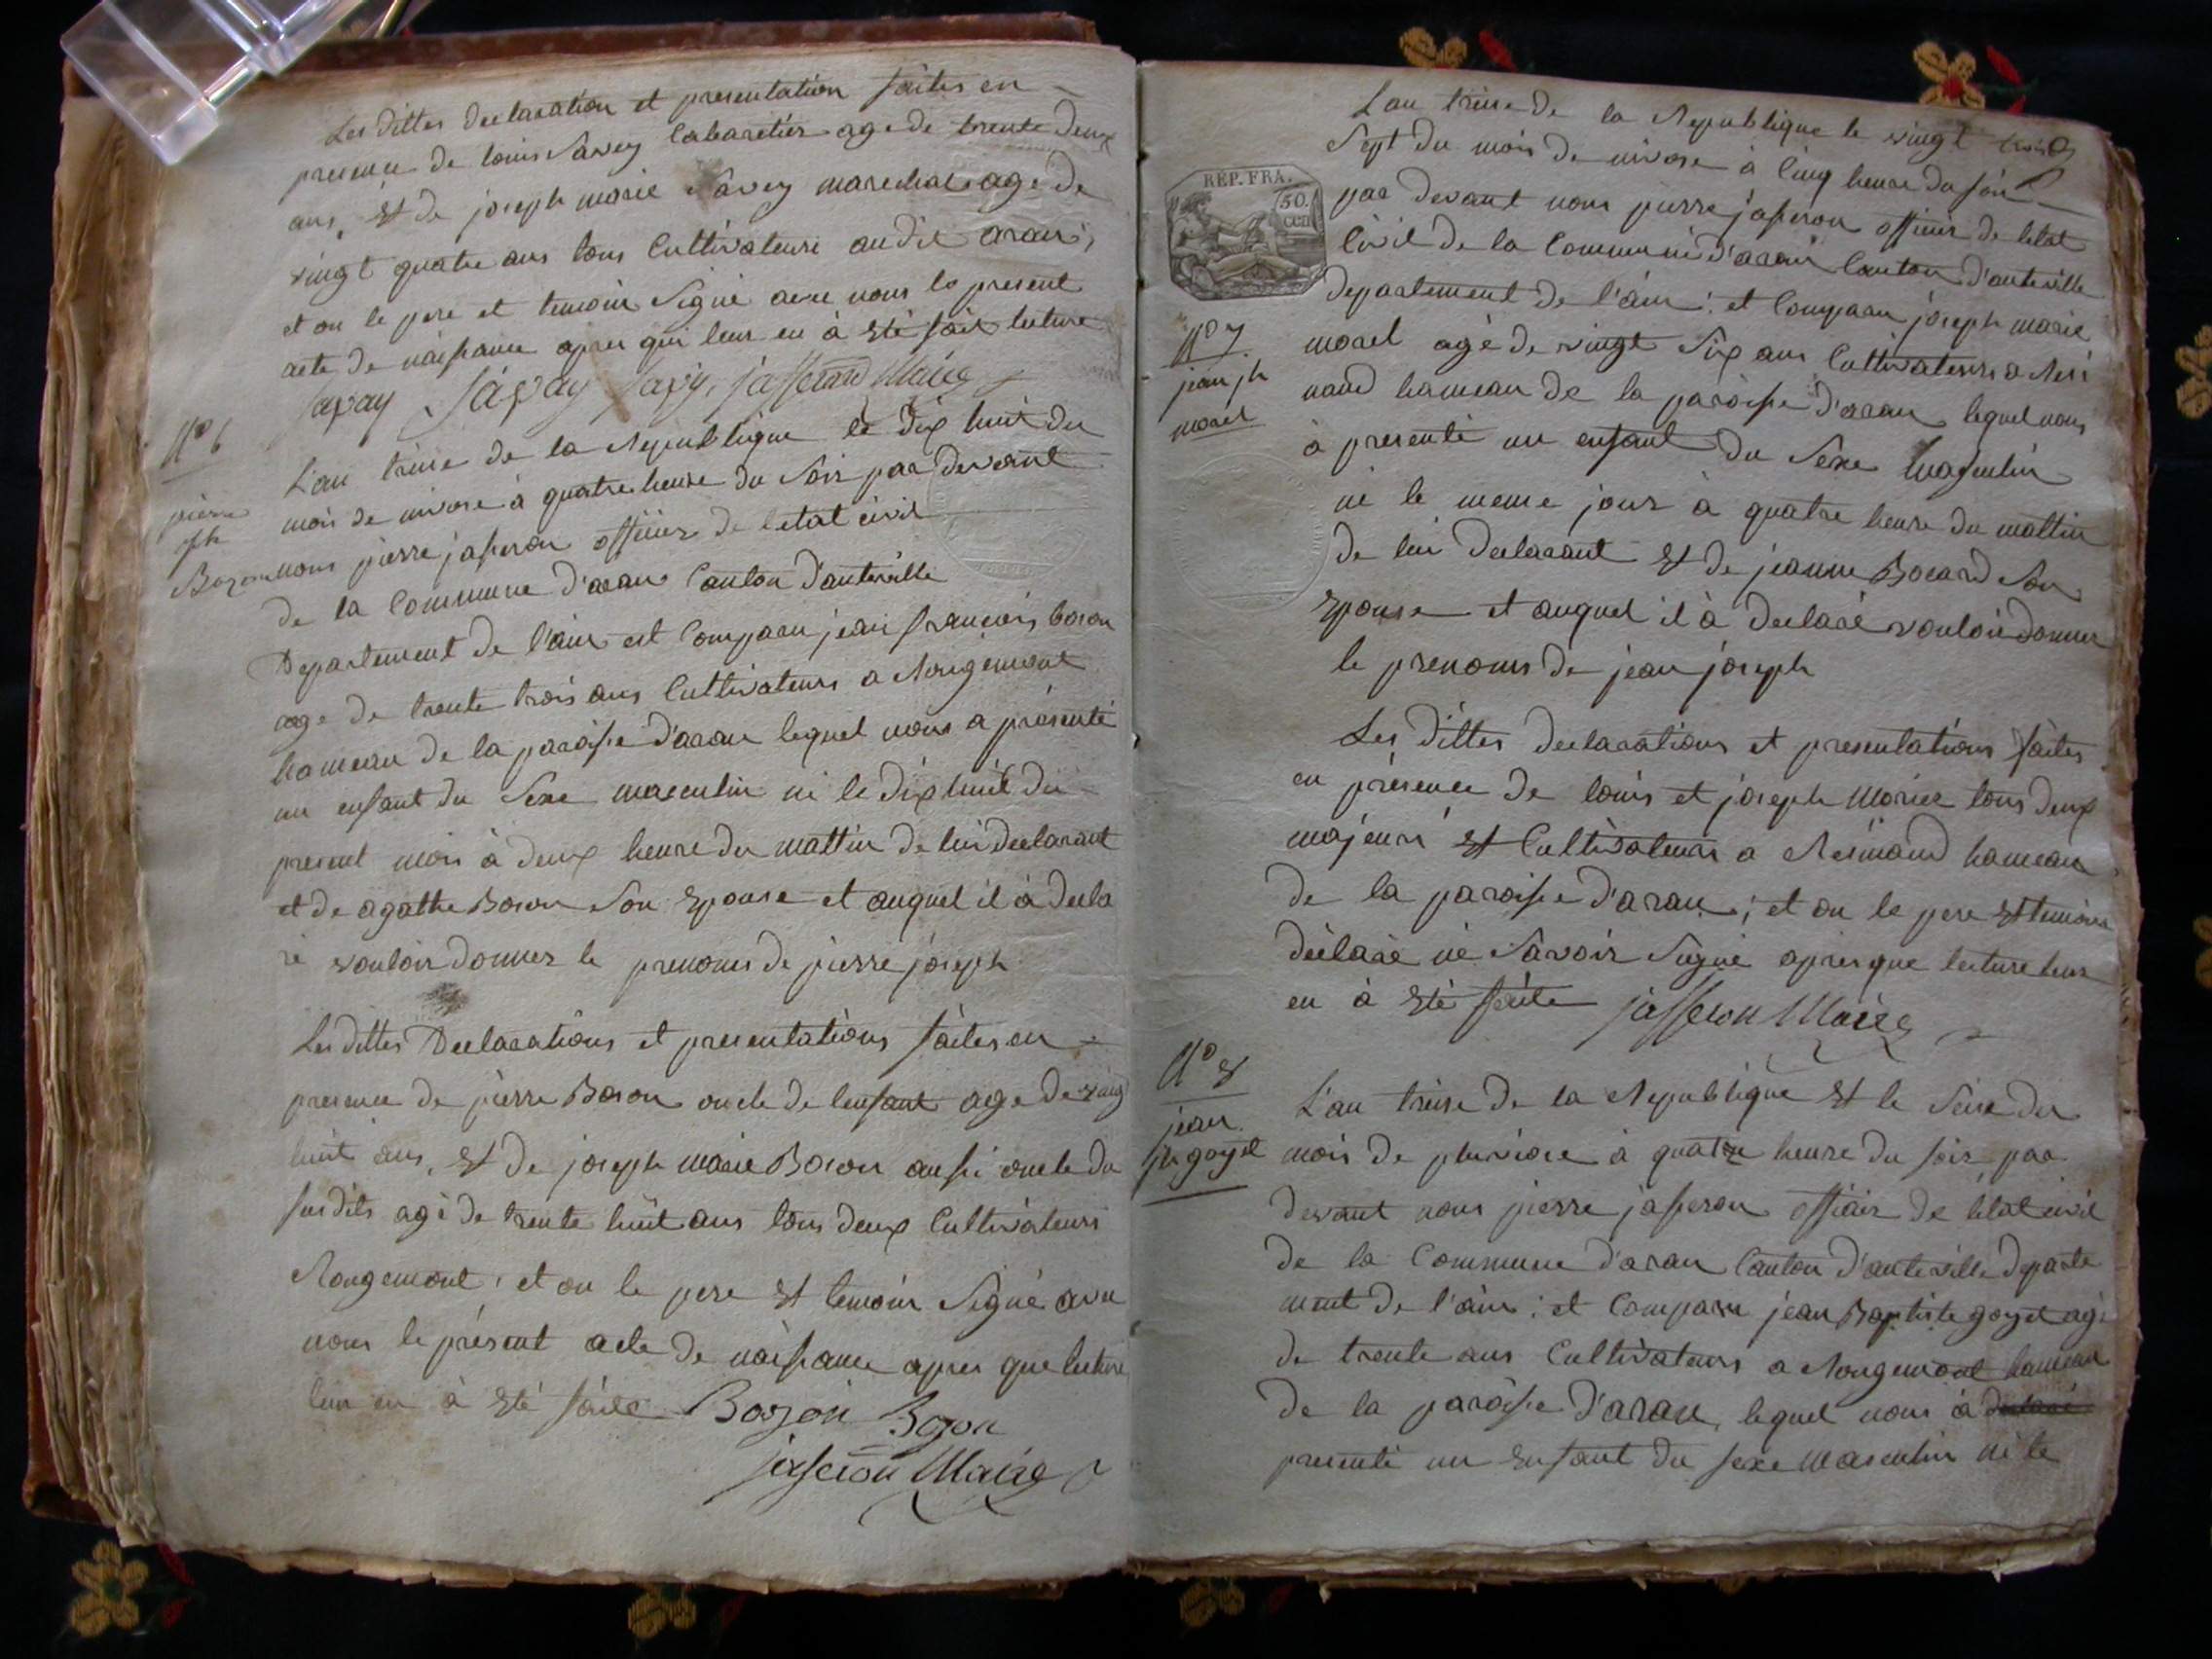 Les dittes declaration et presentation faites en
presence de louis Savey Cabaretier agé de trente deux
ans, Et de joseph marie Savey marechal agé de
vingt quatre ans tous Cultivateurs audit aran;
et on le pere et temoin Signé avec nous le present
acte de naissance apres qui leur en à Eté fait lecture
Savay Savay Savy, jasseron Maire
N° 6
pierre
jph
Bozon
L'an treise de la Republique le dix huit du
mois de nivose à quatre heure du Soir par devant
nous pierre jasseron officier de letat civil
de la Commune d'aran Canton d'auteville
Departement de l'ain est Comparu jean françois boson
age de trente trois ans Cultivateurs a Rougemont
hameau de la paroisse d'aran lequel nous a présenté
un enfant du Sexe masculin né le dix huit du
present mois à deux heure du mattin de lui declarant
et de agathe Boson Son Epouse et auquel il à decla
ré vouloir donner le prenoms de pierre joseph
Les dittes Declarations et presentations faites en
presence de pierre Boson oncle de lenfant age de ving
huit ans, Et de joseph marie Boson aussi oncle du
susdits agé de trente huit ans tous deux Cultivateurs
Rougemont; et on le pere Et temoin Signé avec
nous le présent acte de naissance apres que lecture
leur en à Eté faite Bozon Bozon
jasseron Maire
REP. FRA.
50.
cen
Lan treise de la Republique le vingt
Sept du mois de nivose à Cinq heure du soir
par devant nous pierre jasseron officier de letat
Civil de la Commune d'aran Canton d'auteville
departement de l'ain: et Comparu joseph marie
N° 7
jean jh
morel
morel agé de vingt Six ans Cultivateurs a Resi
naud hameau de la paroisse d'aran lequel nous
à presenté un enfant du Sexe masculin
né le meme jour à quatre heure du mattin
de lui declarant Et de jeanne Bocard Son
Epouse et auquel il à declaré vouloir donner
le prenoms de jean joseph
Les dittes declarations et presentations faites
en présence de louis et joseph Morier tous deux
majeurs Et Cultivateurs a Resinaud hameau
de la paroisse d'aran; et on le pere Et temoins
déclaré né Savoir Signé apres que lecture leur
en à Eté faite jasseron Maire
N° 8
jean
jh goyet
L'an treise de la Republique Et le Seise du
mois de pluviose à quatre heure du soir par
devant nous pierre jasseron officier de létat civil
de la Commune d'aran Canton d'auteville departe
ment de l'ain: et Comparu jean Baptiste goyet agé
de trente ans Cultivateurs a Rougemont hameau
de la paroisse d'aran, lequel nous à declaré
presenté un Enfant du sexe masculin né le